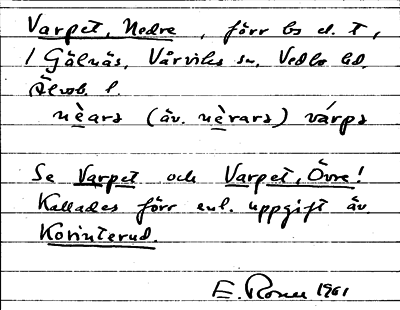 Varpet, Nedre, förr bs o. t,
/ Gölnäs, Vårviks sn, Vedbo hd,
Älvsb. l.
nèars (äv. nèrars) várpa
Se Varpet och Varpet, Övre!
Kallades förr enl. uppgift äv.
Korinterud.
E. Rosell 1961